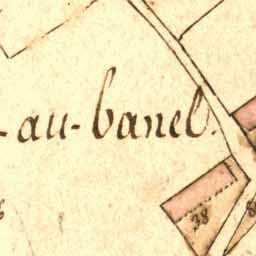 -au-banel.
38